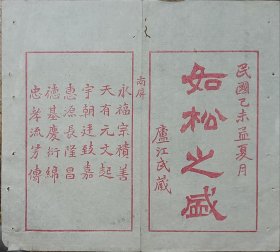 民國己未孟夏月
如松之盛
廬江氏藏
南屏
永福宗積善
天有元文起
宇朝廷啟嘉
惠源長隆昌
德基慶衍綿
忠孝流芳傳